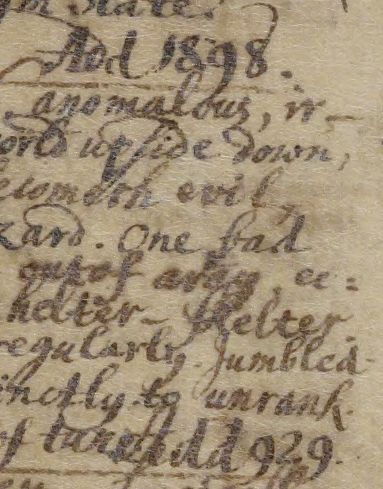 State.
Add 1898.
anomalous, ir-
world upside down,
evil
zard. One bad
out of array, ec=
helter-skelter.
regularly. Jumbled.
inctly. to unrank.
of tune Add 929.